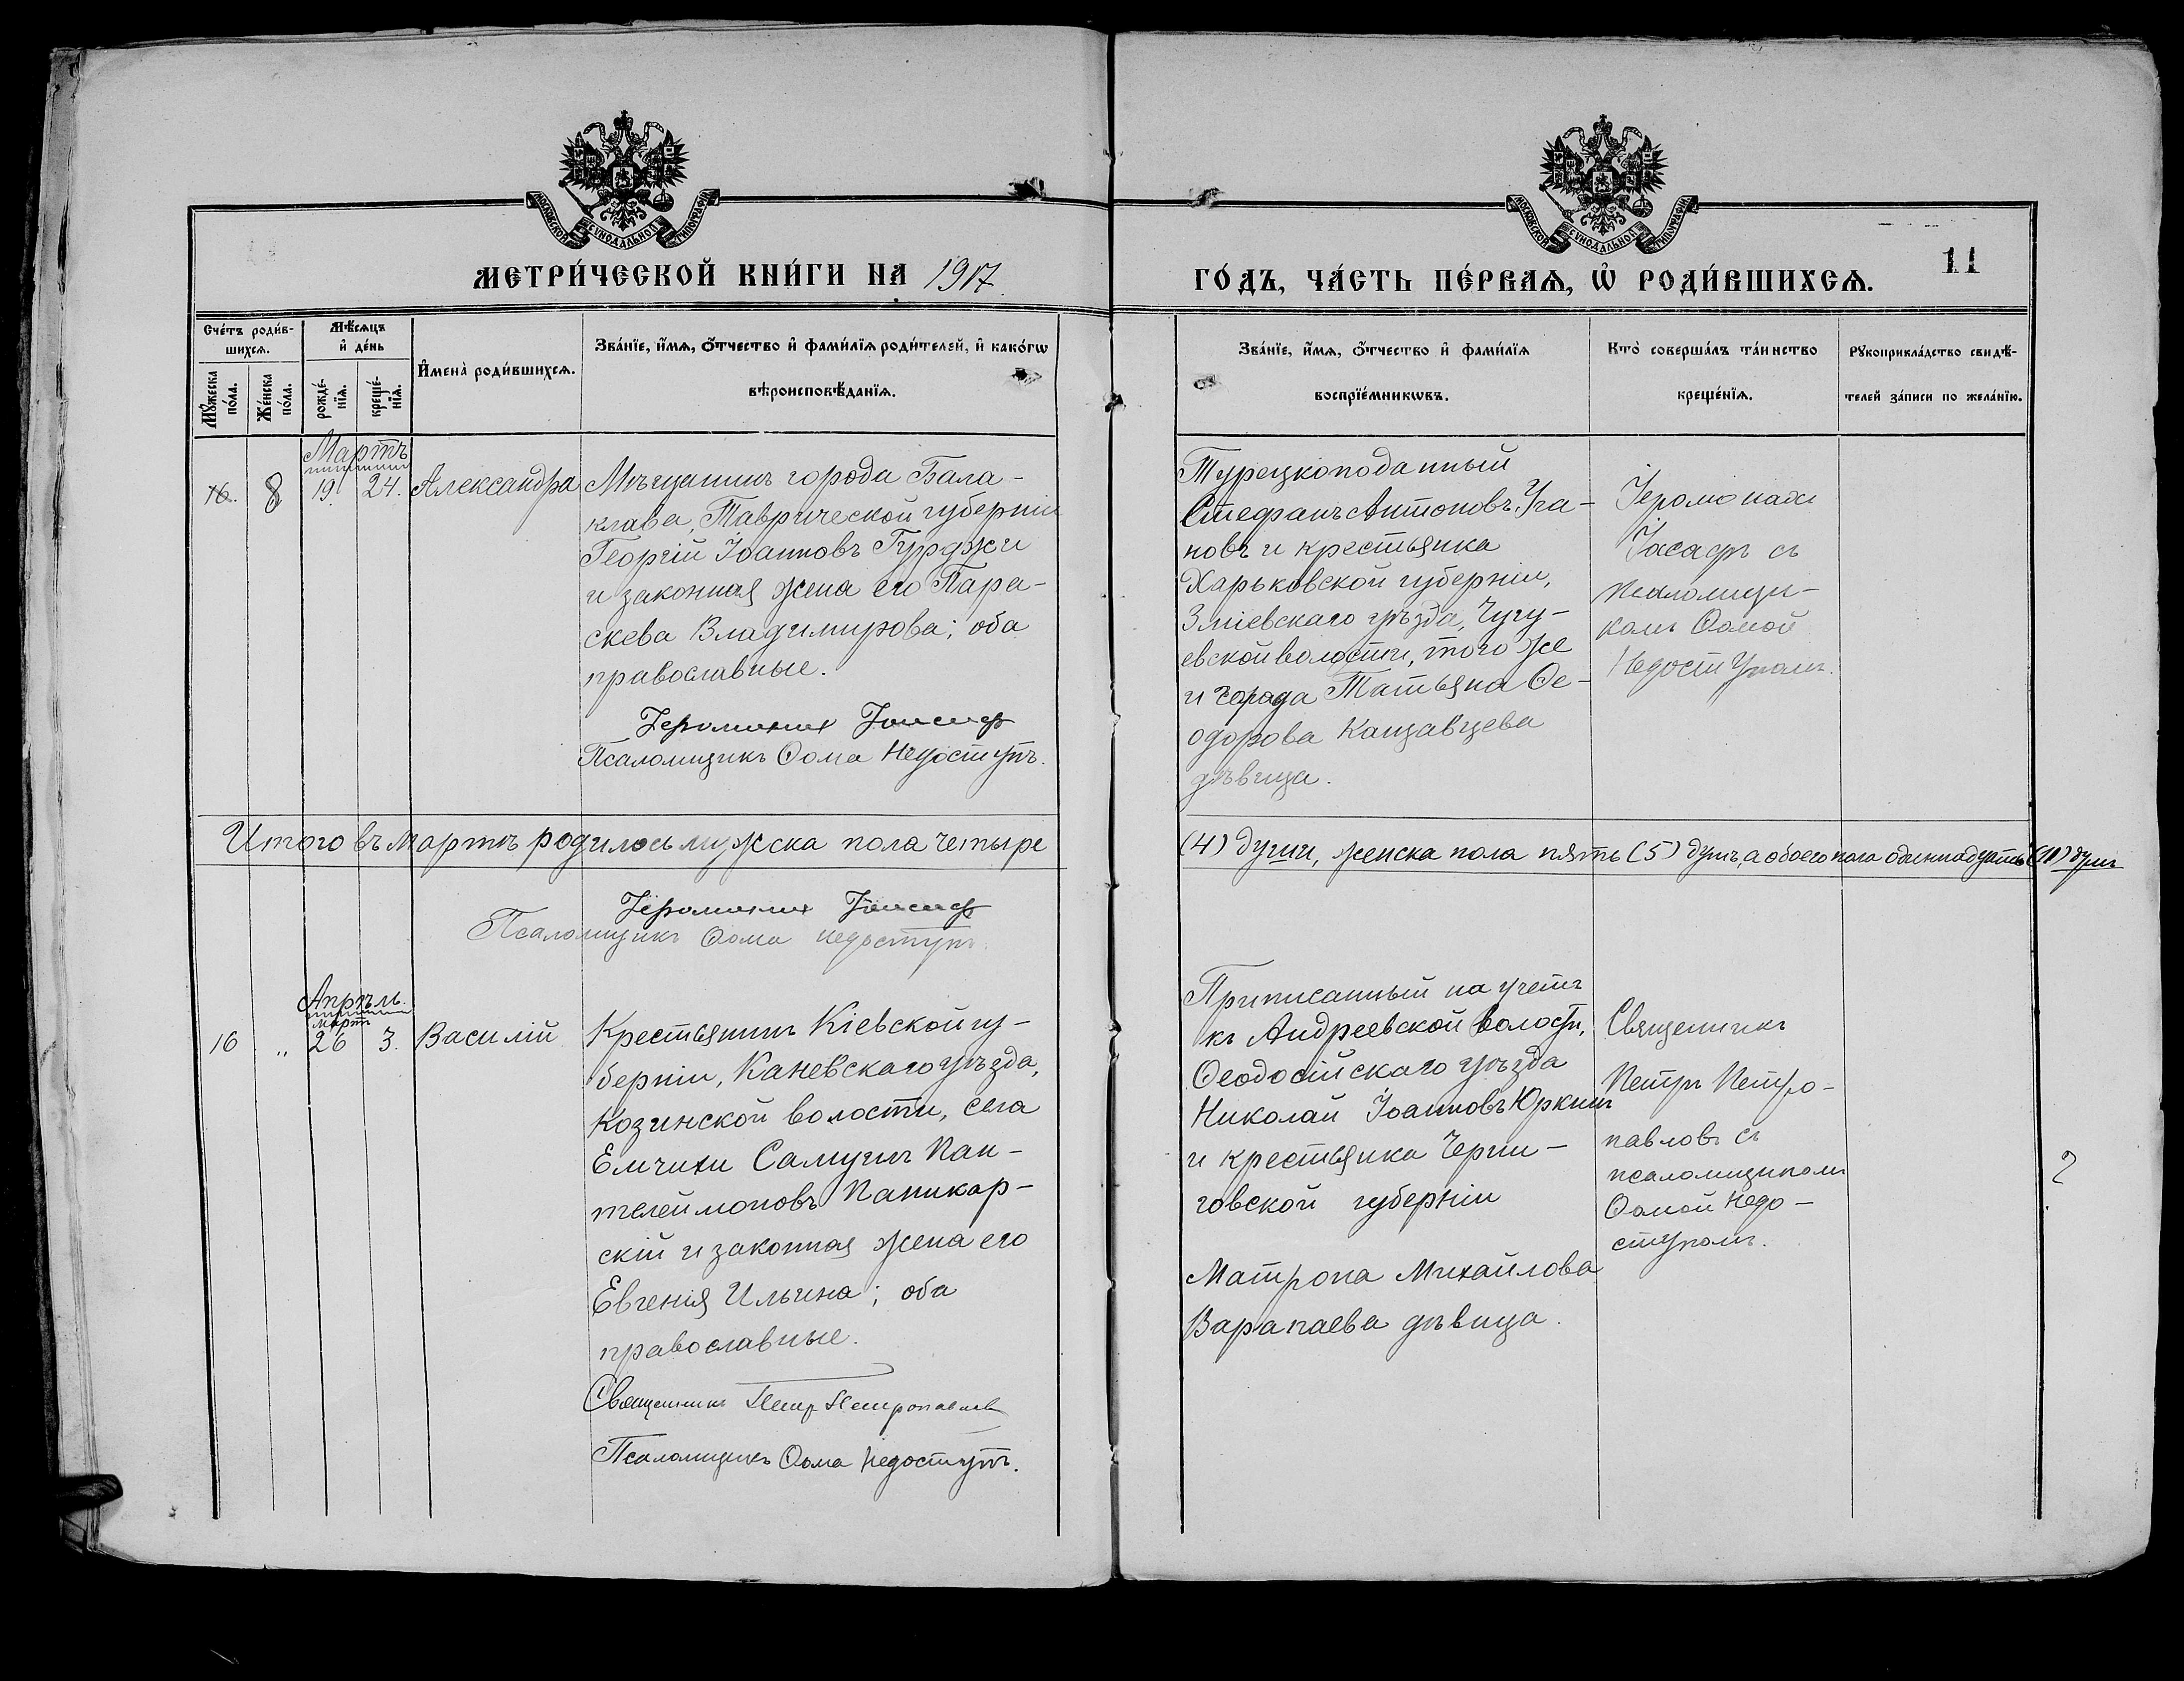 МОСКОВСКОЙ СѴНОДАЛЬНОЙ ТИПОГРАФІИ
МОСКОВСКОЙ СѴНОДАЛЬНОЙ ТИПОГРАФІИ
МЕТРИ́ЧЕСКОЙ КНИ́ГИ НА 1917
ГО́ДЪ, ЧА́СТЬ ПЕ́РВАѦ, Ѡ҆ РОДИ́ВШИХСѦ.
11
Сче́тъ роди́в-
шихсѧ.
Мѣ́сѧцъ
и҆ де́нь
И҆мена̀ роди́вшихсѧ.
Зва́нїе, и҆́мѧ, ѻ҆́тчество и҆ фами́лїѧ роди́телей, и҆ како́гѡ
вѣроисповѣ́данїѧ.
Мꙋ́жеска по́ла.
Же́нска по́ла.
рожде́-
нїѧ.
креще́-
нїѧ.
Зва́нїе, и҆́мѧ, ѻ҆́тчество и҆ фами́лїѧ
воспрїе́мникѡвъ.
Кто̀ соверша́лъ та́инство
креще́нїѧ.
Рꙋкоприкла́дство свидѣ́-
телей за́писи по жела́нїю.
Мартъ
16. 8 19. 24. Александра
Мѣщанинъ города Бала-
клава, Таврической губерніи
Георгій Іоанновъ Гурджи
и законная жена его Пара-
скева Владимирова; оба
православные.
Іеромонах
Псаломщикъ Ѳома Недоступъ.
Турецкоподанный
Стефанъ Антоновъ Уга-
новъ и крестьянка
Харьковской губерніи,
Зміевскаго уѣзда, Чугу-
евской волости, того же
и города Татьяна Ѳе-
одорова Кащавцева
дѣвица.
Іеромонахъ
Іасафъ съ
псаломщи-
комъ Ѳомой
Недоступомъ.
Итого въ мартѣ родилось мужска пола четыре
(4) души, женска пола пять (5) душъ, а обоего пола одиннадцать (11) душъ
Іеромонах
Псаломщикъ Ѳома Недоступъ.
Апрѣль.
мартъ
16 „ 26 3. Василій
Крестьянинъ Кіевской гу-
берніи, Каневскаго уѣзда,
Козинской волости, села
Емчихи Самуилъ Пан-
телеймоновъ Паникар-
скій и законная жена его
Евгенія Ильина; оба
православные.
Священникъ Петр Петропавлов
Псаломщикъ Ѳома Недоступъ.
Приписанный на учетъ
къ Андреевской волости,
Ѳеодосійскаго уѣзда
Николай Іоанновъ Юркинъ
и крестьянка Черни-
говской губерніи
Матрона Михайлова
Варапаева дѣвица.
Священникъ
Петръ Петро-
павловъ съ
псаломщикомъ
Ѳомой Недо-
ступомъ.
2